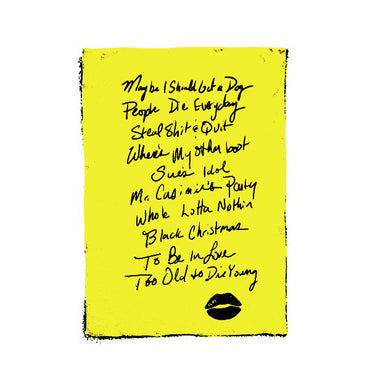 Maybe I Should Get a Dog
People Die Everyday
Steal Shit & Quit
Where's My Other boot
Sue's Idol
Mr. Casimir's Party
Whole Lotta Nothin
Black Christmas
To Be In Love
Too Old to Die Young